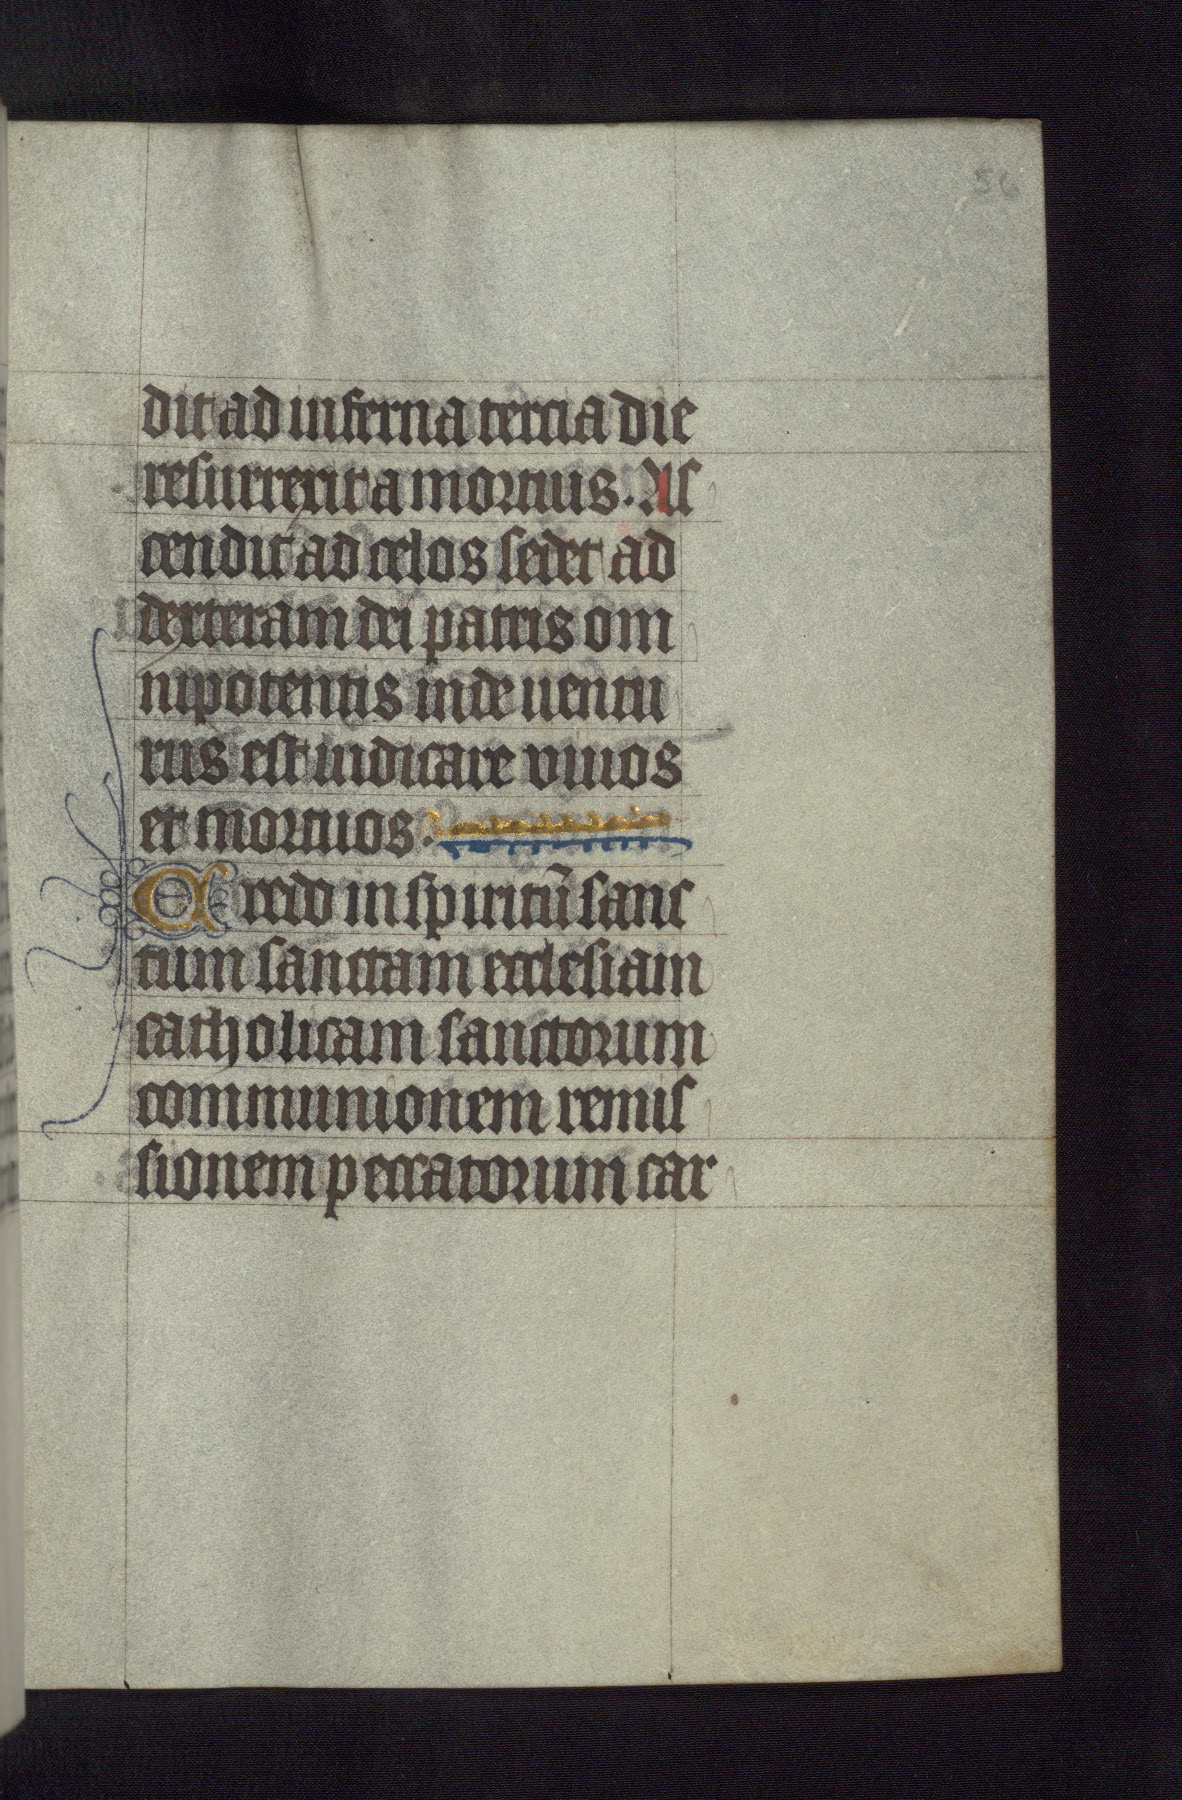 56
dit ad inferna tercia die
resurrexit a mortuis. As
cendit ad celos sedet ad
dexteram dei patris om
nipotentis inde uentu
rus est iudicare viuos
et mortuos.
Credo in spiritū sanc
tum sanctam ecclesiam
catholicam sanctorum
communionem remis
sionem peccatorum car